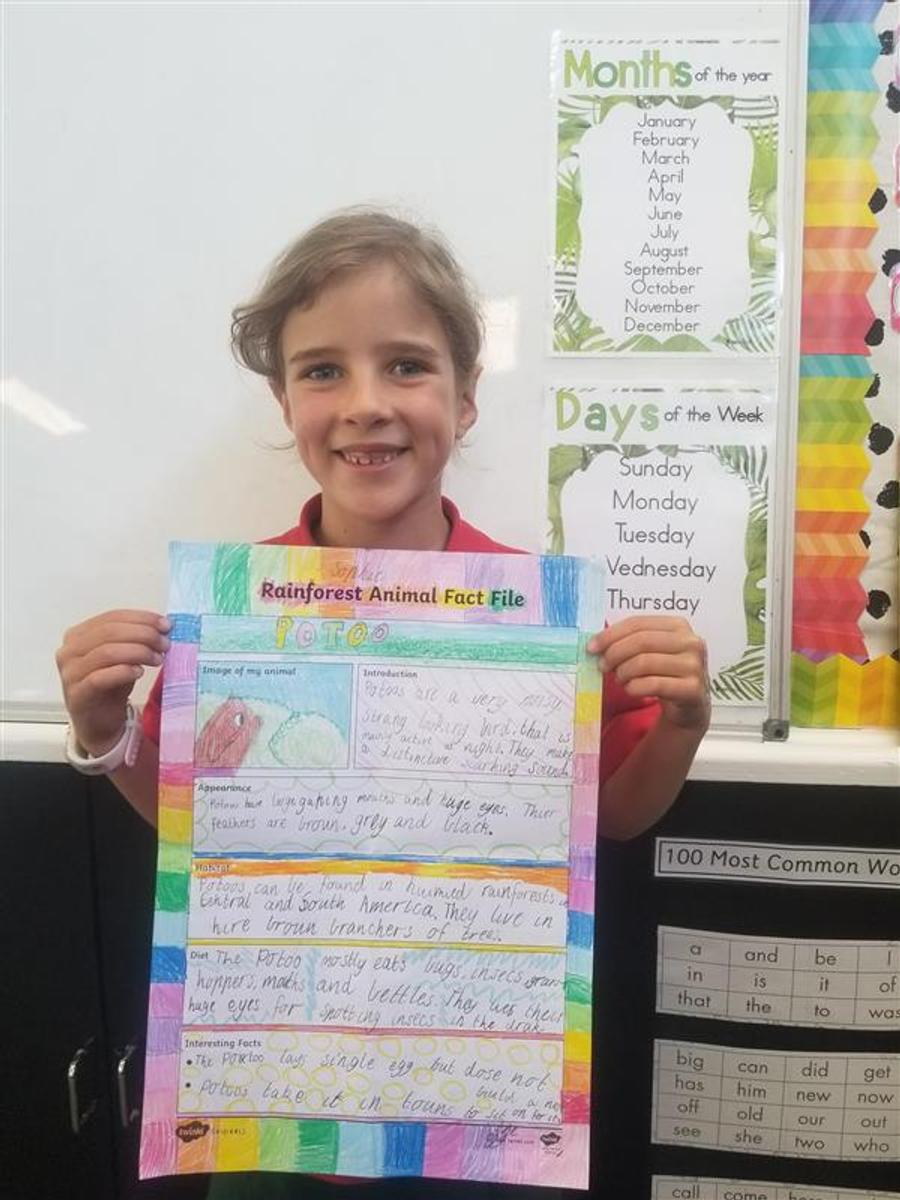 Months of the year
January
February
March
April
May
June
July
August
September
October
November
December
Days of the Week
Sunday
Monday
Tuesday
Wednesday
Thursday
Sophie
Rainforest Animal Fact File
POTOO
Image of my animal
Introduction
Potoos are a very noisy
strang looking bird. that is
mainly active at night. They make
a distinctive barking sound
Appearance
Potoos have large gaming mouths and huge eyes. Thier
feathers are broun, grey and black.
Habitat
Potoos can be found in humid rainforests in
Central and South America. They live in
hire broun branchers of trees.
Diet The Potoo mostly eats bugs, insecs, grass
hoppers, moths and bettles. They ues their
huge eyes for spotting insects in the drak
Interesting Facts
• The Potoo lays single egg but dose not
build a nest
• Potoos take it in touns to sit on
twinkl
100 Most Common Wo
a and be I
in is it of
that the to was
big can did get
has him new now
off old our out
see she two who
call come